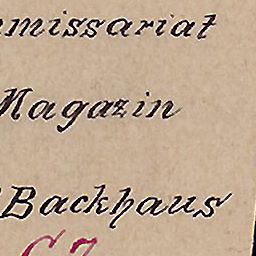 mmissariat
Magazin
Backhaus
C7